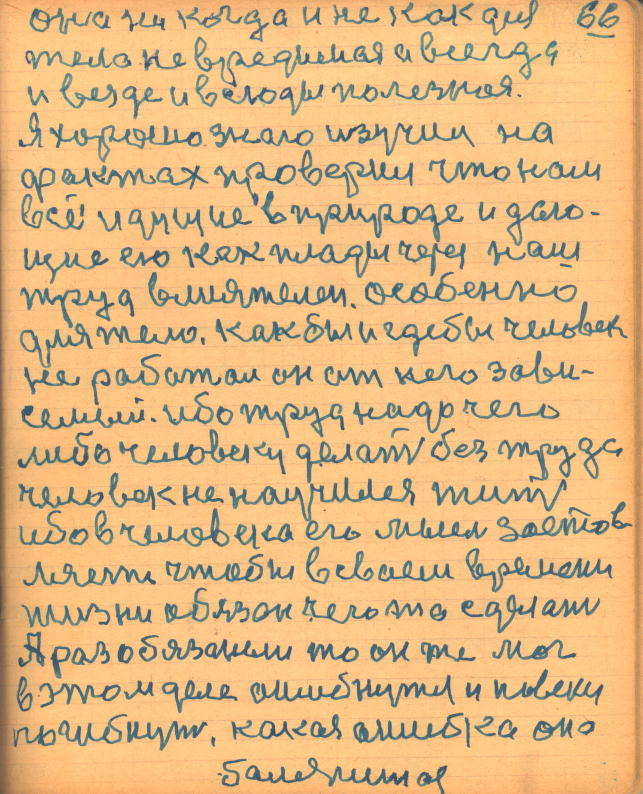 она ни когда и не как для 66
тело не вредимая а всегда
и везде и всюды полезная.
Я хорошо знаю изучил на
фактах проверил что нам
всё идущие в природе и даю-
щие ею как плады через наш
труд влиятелен. особенно
для тело. как бы и где бы человек
не работал он от него зави-
семый. ибо труд надо чего
либо человеку делать без труда
человек не научился жить
ибо в человека его мысл застов
ляеть чтобы в сваем времени
жизни обязан чегото сделат
А раз обязанли то он же мог
в этом деле ошибнутся и
погибнуть, какая ошибка она